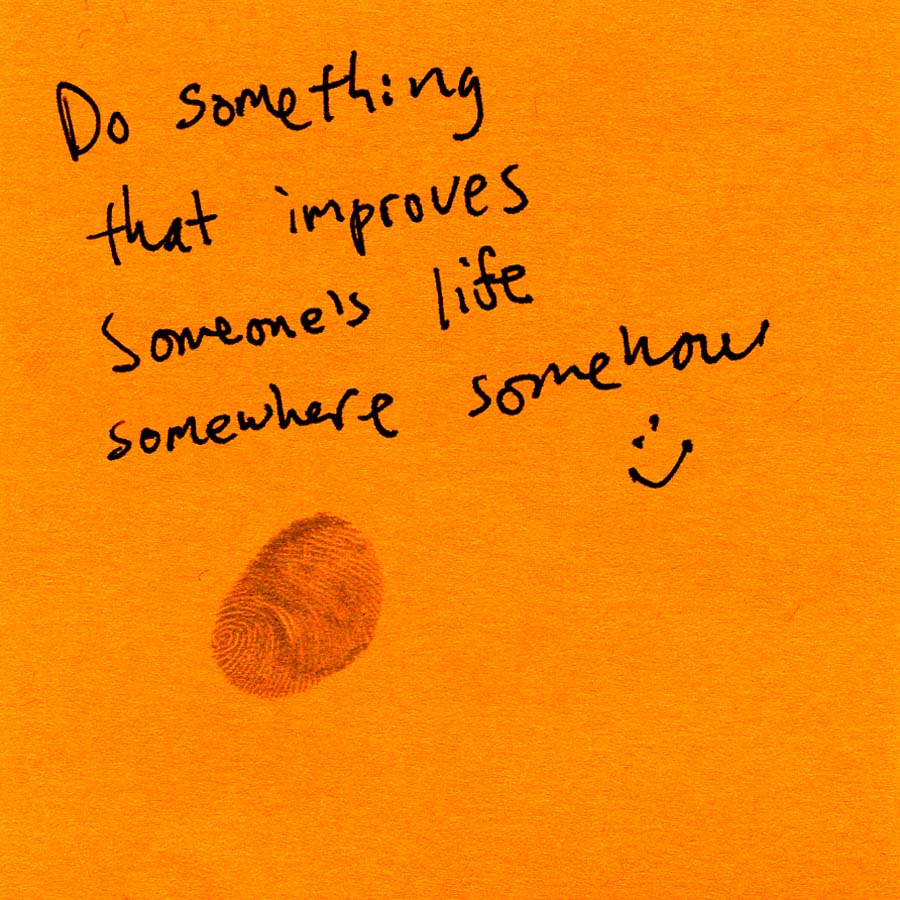 Do something
that improves
Someone's life
somewhere somehow
:)